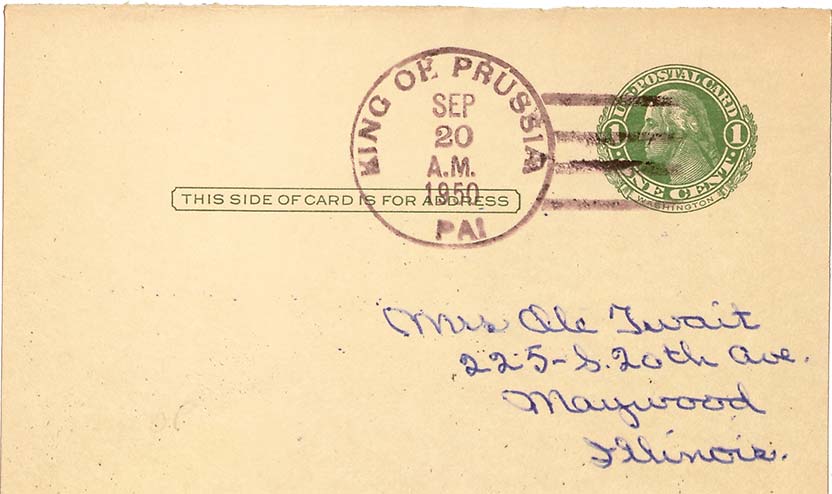 KING OF PRUSSIA
SEP
20
A.M.
1950
PA
U.S. POSTAL CARD
1 1
ONE CENT
WASHINGTON
THIS SIDE OF CARD IS FOR ADDRESS
Mrs Ole Twait
225-S. 20th Ave.
Maywood
Illinois.